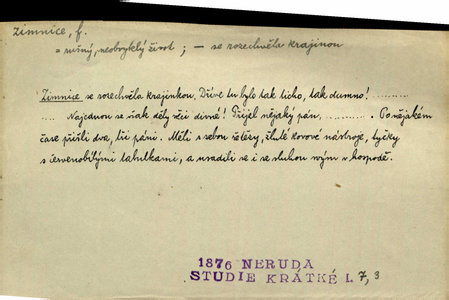 zimnice, f.
= rušný, neobvyklý život ; — se rozechvěla krajinou
Zimnice se rozechvěla krajinkou. Dříve tu bylo tak ticho, tak dumno! ..........
.......... Najednou se však děly věci divné! Přijel nějaký pán, .......... Po nějakém
čase přišli dva, tři páni. Měli s sebou řetězy, žluté kovové nástroje, tyčky
s červenobílými tabulkami, a usadili se i se sluhou svým v hospodě.
1876 NERUDA
STUDIE KRÁTKÉ I. 7, 3